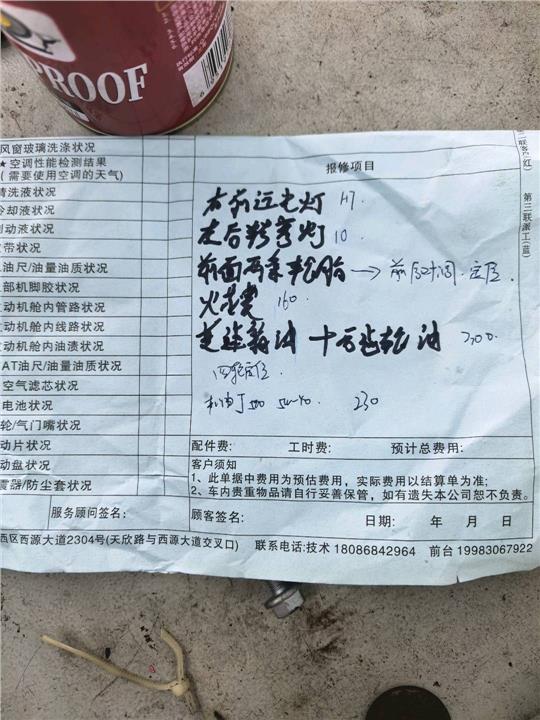 PROOF
风窗玻璃洗涤状况
★空调性能检测结果
(需要使用空调的天气)
清洗液状况
冷却液状况
制动液状况
带状况
油尺/油量油质状况
部机脚胶状况
动机舱内管路状况
动机舱内线路状况
动机舱内油渍状况
AT油尺/油量油质状况
空气滤芯状况
电池状况
轮/气门嘴状况
动片状况
动盘状况
震器/防尘套状况
报修项目
右前近光灯 H7
左后刹车灯 10
前面两条轮胎 → 前后对调.定位.
火花塞 160.
变速箱油 十万齿轮油 300.
四轮定位
5W-40 230
配件费: 工时费: 预计总费用:
客户须知
1、此单据中费用为预估费用，实际费用以结算单为准;
2、车内贵重物品请自行妥善保管，如有遗失本公司恕不负责。
服务顾问签名: 顾客签名: 日期: 年 月 日
西区西源大道2304号(天欣路与西源大道交叉口) 联系电话:技术 18086842964 前台 19983067922
第三联派工(蓝)